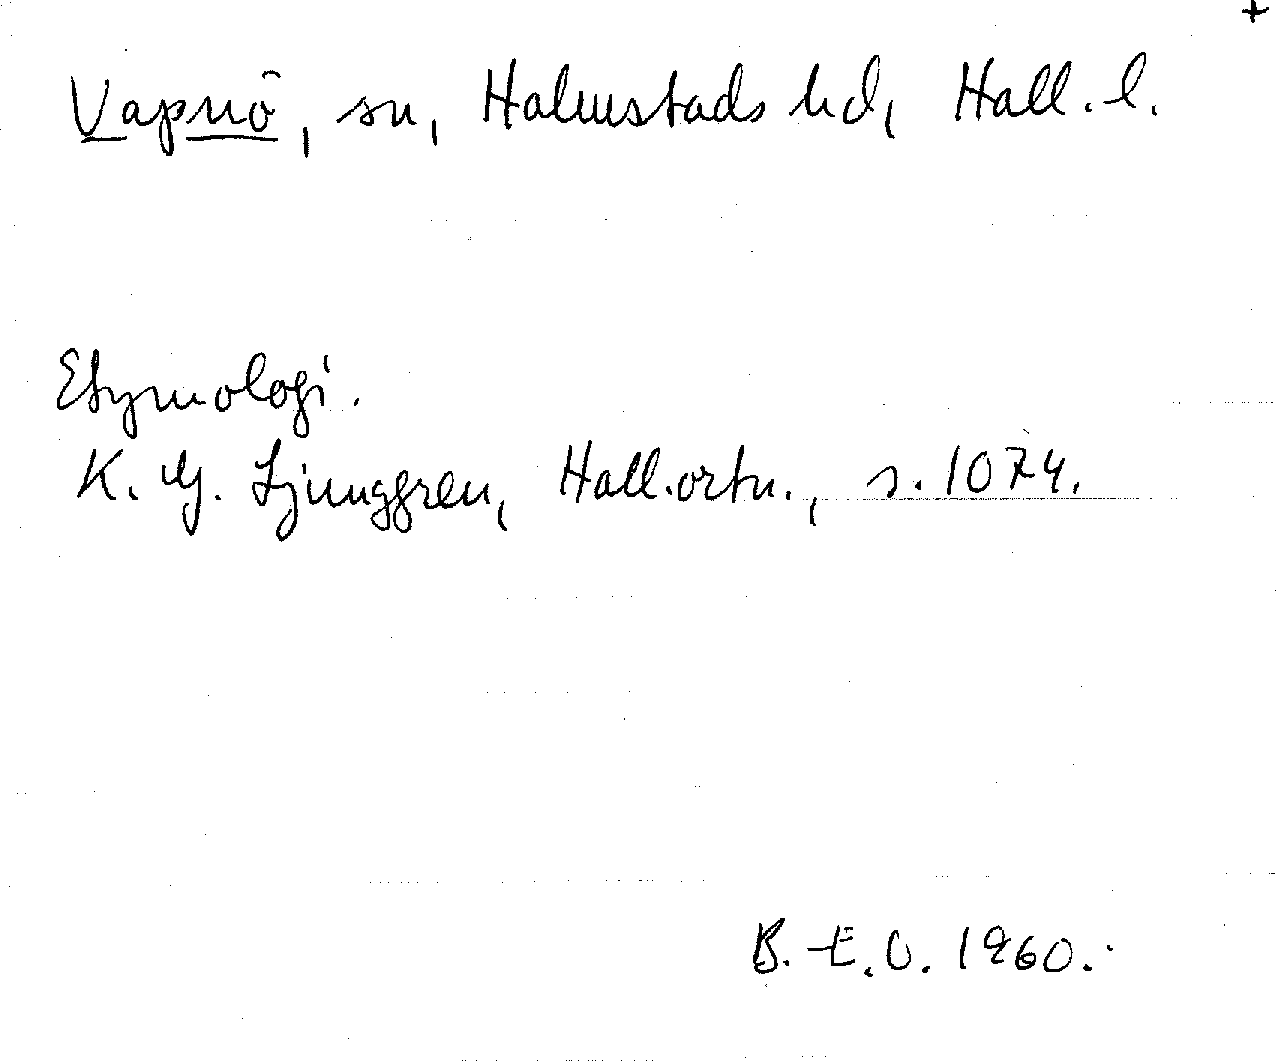 +
Vapnö, sn, Halmstads hd, Hall. l.
Etymologi.
K. G. Ljunggren, Hall.ortn., s. 1074.
B. E. O. 1960.